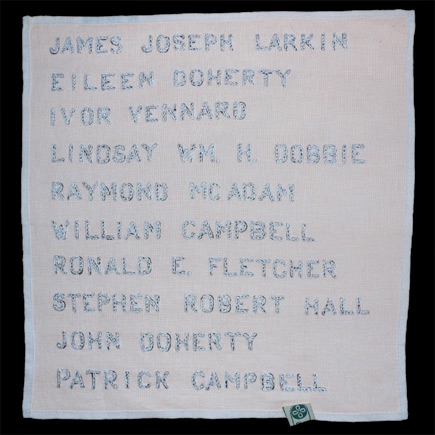 JAMES JOSEPH LARKIN
EILEEN DOHERTY
IVOR VENNARD
LINDSAY WM. H. DOBBIE
RAYMOND MCADAM
WILLIAM CAMPBELL
RONALD E. FLETCHER
STEPHEN ROBERT HALL
JOHN DOHERTY
PATRICK CAMPBELL